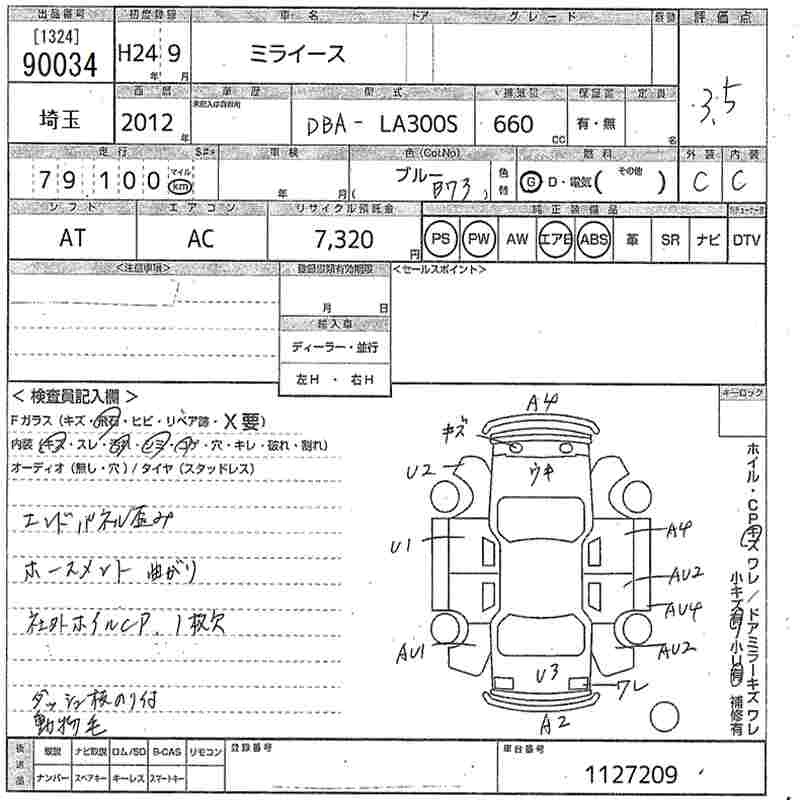 出品番号 初度登録 車名 ドア グレード 評価点
[1324]
90034 H24 9 ミライース 3.5
年 月
西暦 車歴 型式 排気量 保証書 定員
埼玉 2012年 DBA- LA300S 660 cc 有・無 名
走行 車検 色(ColNo) 燃料 外装 内装
79,100 マイル km 年 月 ( ブルー B73 ) 色替 G D・電気( その他 ) C C
シフト エアコン リサイクル預託金 純正装備品
AT AC 7,320円 PS PW AW エアB ABS 革 SR ナビ DTV
<注意事項> 登録書類有効期限 <セールスポイント>
月 日
輸入車
ディーラー・並行
左H ・ 右H
<検査員記入欄> キーロック
Fガラス (キズ・飛石・ヒビ・リペア跡・X要)
内装 (キズ・スレ・汚れ・シミ・コゲ・穴・キレ・破れ・割れ)
オーディオ (無し・穴) / タイヤ (スタッドレス)
エンドパネル歪み
ホースメント 曲がり
社外ホイルCP. 1枚欠
ダッシュ板のり付
動物毛
A4
キズ
ウキ
U2
U1 A4
AU2
AU4
AU1 AU2
U3
ワレ
A2
ホイル・CPキズ ワレ/ドアミラーキズ ワレ
小キズ有 小U有 補修有
後送品 取説 ナビ取説 ロム/SD B-CAS リモコン 登録番号 車台番号
ナンバー スペアキー キーレス スマートキー 1127209